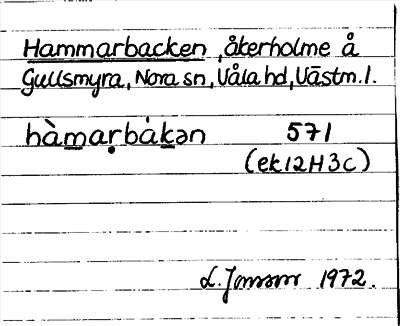 Hammarbacken, åkerholme å
Gullsmyra, Nora sn, Våla hd, Västm.l.
hàmaṛbákən 571
(ek12H3c)
L. Jonsson 1972.